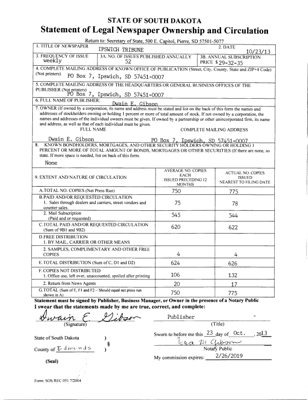 STATE OF SOUTH DAKOTA
Statement of Legal Newspaper Ownership and Circulation
Return to: Secretary of State, 500 E. Capitol, Pierre, SD 57501-5077
1. TITLE OF NEWSPAPER
IPSWICH TRIBUNE
2. DATE
10/23/13
3. FREQUENCY OF ISSUE
weekly
3A. NO. OF ISSUES PUBLISHED ANNUALLY
52
3B. ANNUAL SUBSCRIPTION
PRICE $29-32-35
4. COMPLETE MAILING ADDRESS OF KNOWN OFFICE OF PUBLICATION (Street, City, County, State and ZIP+4 Code)
(Not printers)
PO Box 7, Ipswich, SD 57451-0007
5. COMPLETE MAILING ADDRESS OF THE HEADQUARTERS OR GENERAL BUSINESS OFFICES OF THE
PUBLISHER (Not printers)
PO Box 7, Ipswich, SD 57451-0007
6. FULL NAME OF PUBLISHER:
Dwain E. Gibson
7. OWNER (If owned by a corporation, its name and address must be stated and for on the back of this form the names and
addresses of stockholders owning or holding 1 percent or more of total amount of stock. If not owned by a corporation, the
names and addresses of the individual owners must be given. If owned by a partnership or other unincorporated firm, its name
and address, as well as that of each individual must be given.
FULL NAME
COMPLETE MAILING ADDRESS
Dwain E. Gibson
PO Box 7, Ipswich, SD 57451-0007
8. KNOWN BONDHOLDERS, MORTGAGES, AND OTHER SECURITY HOLDERS OWNING OR HOLDING 1
PERCENT OR MORE OF TOTAL AMOUNT OF BONDS, MORTGAGES OR OTHER SECURITIES (If there are none, so
state. If more space is needed, list on back of this form.
None
9. EXTENT AND NATURE OF CIRCULATION
AVERAGE NO. COPIES
EACH
ISSUED PRECEDING 12
MONTHS
ACTUAL NO. COPIES
ISSUED
NEAREST TO FILING DATE
A. TOTAL NO. COPIES (Net Press Run)
750
775
B. PAID AND/OR REQUESTED CIRCULATION
1. Sales through dealers and carriers, street vendors and
counter sales.
75
78
2. Mail Subscription
(Paid and or requested)
545
544
C. TOTAL PAID AND/OR REQUESTED CIRCULATION
(Sum of 9B1 and 9B2)
620
622
D. FREE DISTRIBUTION
1. BY MAIL, CARRIER OR OTHER MEANS
2. SAMPLES, COMPLIMENTARY AND OTHER FREE
COPIES
4
4
E. TOTAL DISTRIBUTION (Sum of C, D1 and D2)
624
626
F. COPIES NOT DISTRIBUTED
1. Office use, left over, unaccounted, spoiled after printing
106
132
2. Return from News Agents
20
17
G. TOTAL (Sum of E, F1 and F2 - Should equal net press run
shown in A)
750
775
Statement must be signed by Publisher, Business Manager, or Owner in the presence of a Notary Public
I swear that the statements made by me are true, correct, and complete:
Dwain E. Gibson
(Signature)
Publisher
(Title)
State of South Dakota )
County of Edmunds )
Sworn to before me this 23 day of Oct. , 2013
Notary Public
(Seal)
My commission expires: 2/26/2019
Form: SOS REC 051 7/2004